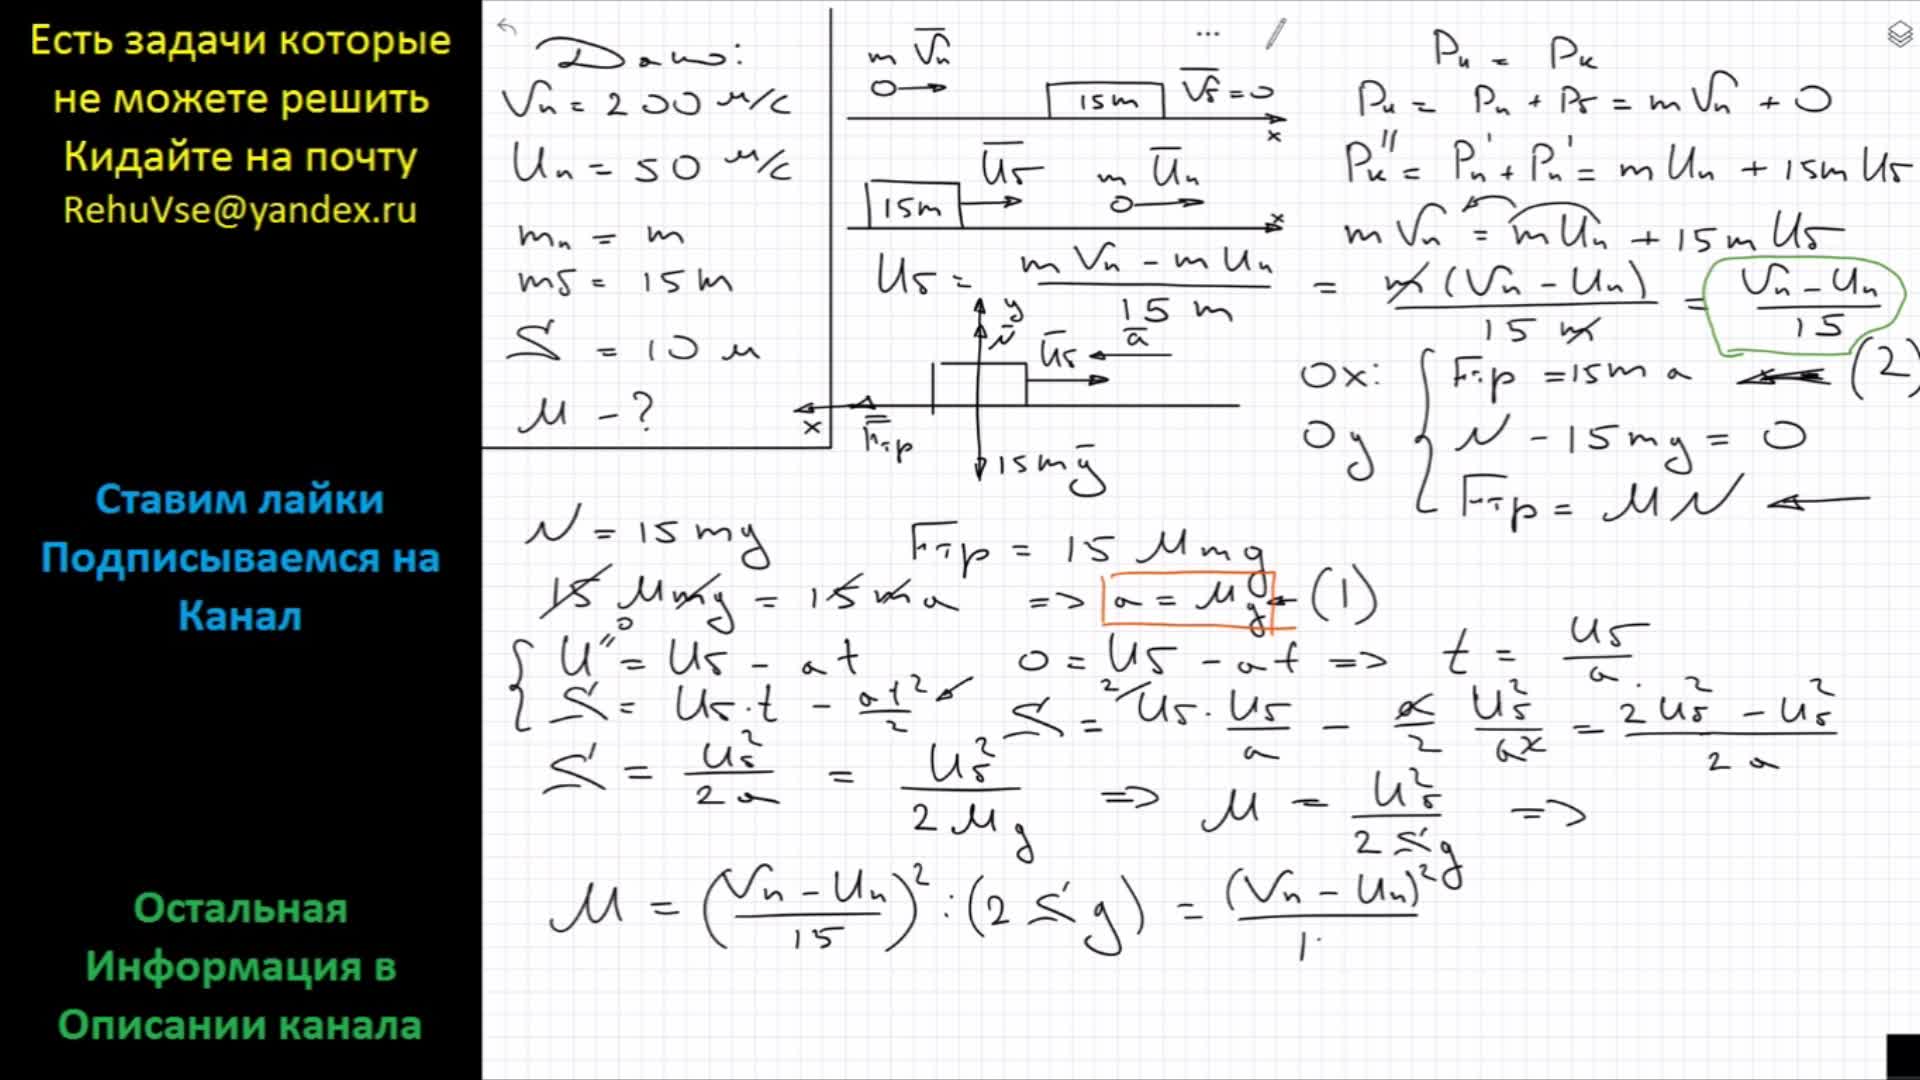 Есть задачи которые
не можете решить
Кидайте на почту
RehuVse@yandex.ru
Ставим лайки
Подписываемся на
Канал
Остальная
Информация в
Описании канала
Дано:
Vп = 200 м/с
Uп = 50 м/с
mп = m
mб = 15m
S = 10 м
μ - ?
m V̅п
15m V̅б = 0
x
15m U̅б m U̅п
x
Uб = (m Vп - m Uп) / 15 m = m (Vп - Uп) / 15 m = (Vп - Uп) / 15
y N̅ U̅б a̅
x F̅тр 15mg̅
Pн = Pк
Pн = Pп + Pб = m Vп + 0
Pк'' = Pп' + Pп' = m Uп + 15m Uб
m Vп = m Uп + 15m Uб
Ox: Fтр = 15m a (2)
Oy N - 15mg = 0
Fтр = μN
N = 15mg Fтр = 15 μmg
15 μmg = 15 m a => a = μg (1)
U'' = Uб - at 0 = Uб - at => t = Uб / a
S = Uб·t - at²/2 S = ²Uб · Uб/a - a/2 Uб²/a² = (2Uб² - Uб²) / 2a
S = Uб²/2a = Uб²/2μg => μ = Uб²/2Sg =>
μ = ((Vп - Uп)/15)² : (2Sg) = (Vп - Uп)² / 1